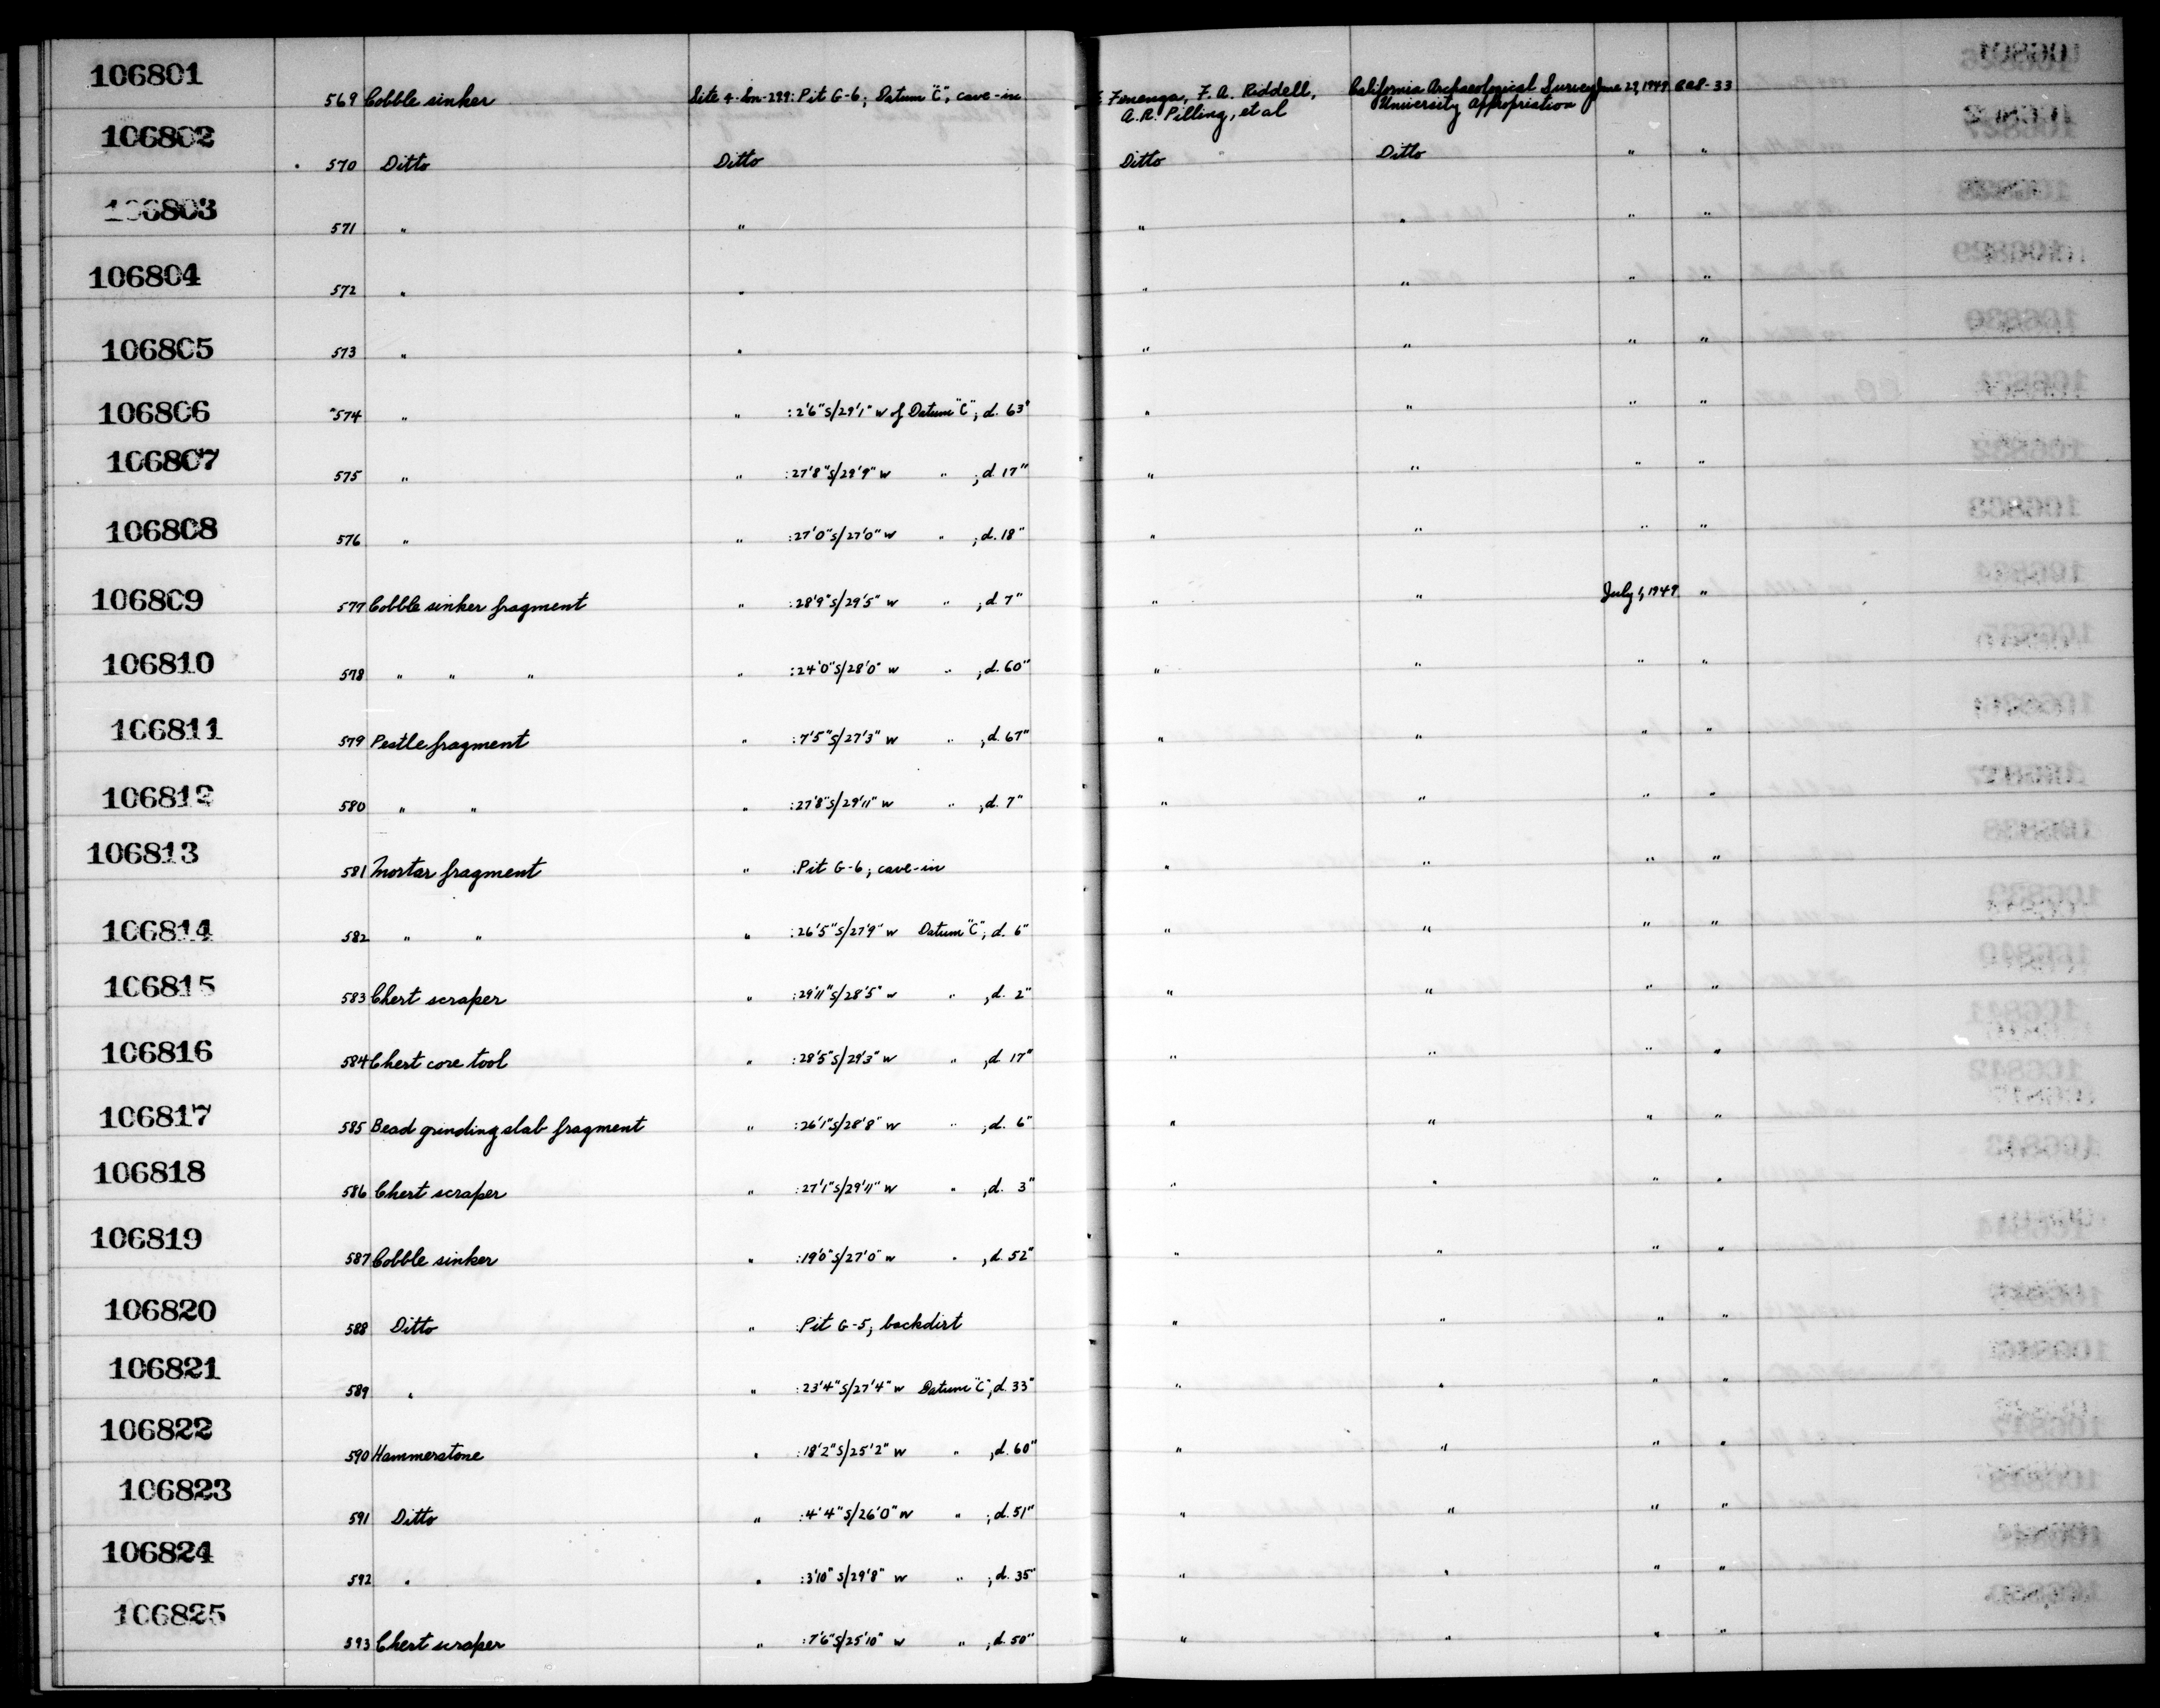 106801
569 Cobble sinker Site 4-Son-299: Pit G-6; Datum "C", cave-in F. Fenenga, F. A. Riddell, California Archaeological Survey June 29, 1949
A.R. Pilling, et al University Appropriation
106802
570 Ditto Ditto Ditto Ditto " "
106803
571 " " " " " "
106804
572 " " " " " "
106805
573 " " " " " "
106806
574 " " :2'6"S/29'1" W of Datum "C"; d. 63" " " " "
106807
575 " " :27'8"S/29'9" W " ; d. 17" " " " "
106808
576 " " :27'0"S/27'0" W " ; d. 18" " " " "
106809
577 Cobble sinker fragment " :28'9"S/29'5" W " ; d. 7" " " July 1, 1949 "
106810
578 " " " " :24'0"S/28'0" W " ; d. 60" " " " "
106811
579 Pestle fragment " :7'5"S/27'3" W " ; d. 67" " " " "
106812
580 " " " :27'8"S/29'11" W " ; d. 7" " " " "
106813
581 Mortar fragment " :Pit G-6; cave-in " " " "
106814
582 " " " :26'5"S/27'9" W Datum "C"; d. 6" " " " "
106815
583 Chert scraper " :29'11"S/28'5" W " ; d. 2" " " " "
106816
584 Chert core tool " :28'5"S/29'3" W " ; d. 17" " " " "
106817
585 Bead grinding slab fragment " :26'1"S/28'8" W " ; d. 6" " " " "
106818
586 Chert scraper " :27'1"S/29'11" W " ; d. 3" " " " "
106819
587 Cobble sinker " :19'0"S/27'0" W " ; d. 52" " " " "
106820
588 Ditto " :Pit G-5; backdirt " " " "
106821
589 " " :23'4"S/27'4" W Datum "C"; d. 33" " " " "
106822
590 Hammerstone " :18'2"S/25'2" W " ; d. 60" " " " "
106823
591 Ditto " :4'4"S/26'0" W " ; d. 51" " " " "
106824
592 " " :3'10"S/29'8" W " ; d. 35" " " " "
106825
593 Chert scraper " :7'6"S/25'10" W " ; d. 50" " " " "